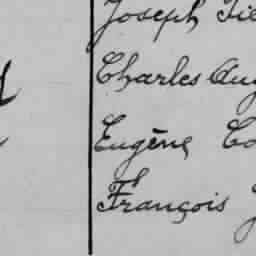 Joseph
Charles Aug
Eugène Co
François